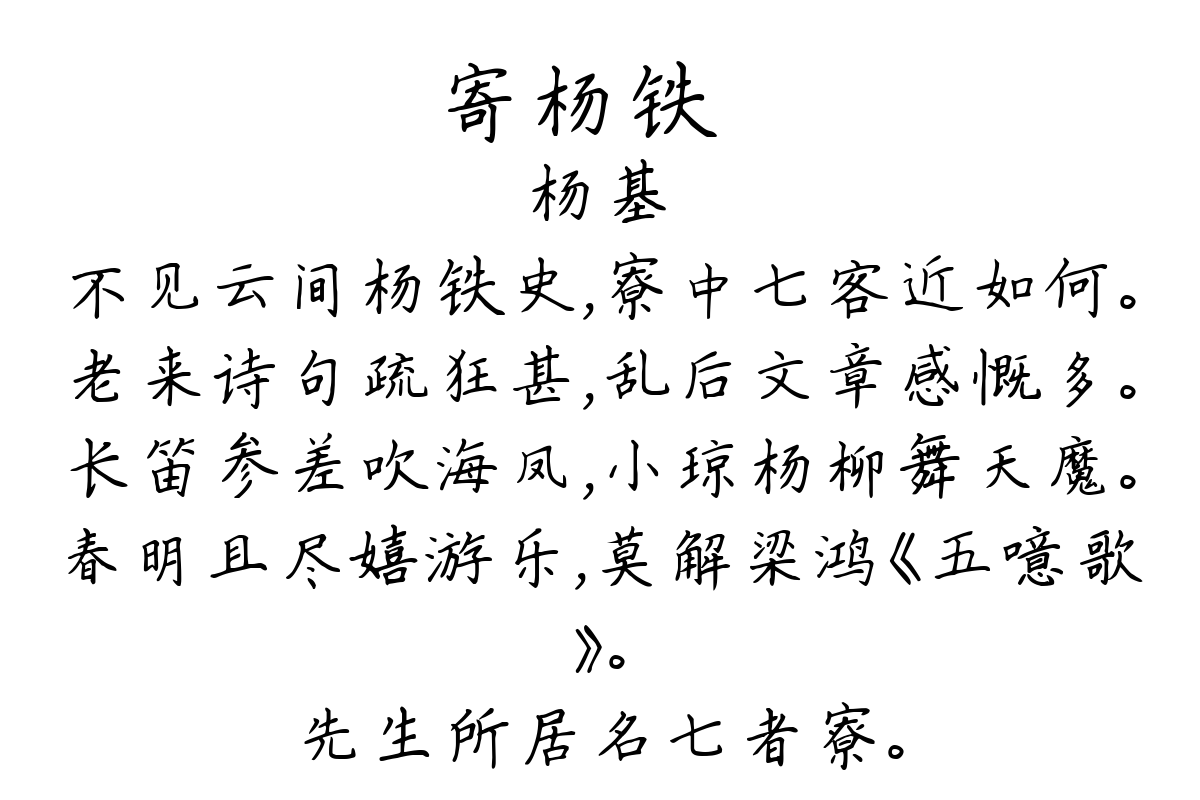 寄杨铁
杨基
不见云间杨铁史,寮中七客近如何。
老来诗句疏狂甚,乱后文章感慨多。
长笛参差吹海凤,小琼杨柳舞天魔。
春明且尽嬉游乐,莫解梁鸿《五噫歌
》。
先生所居名七者寮。